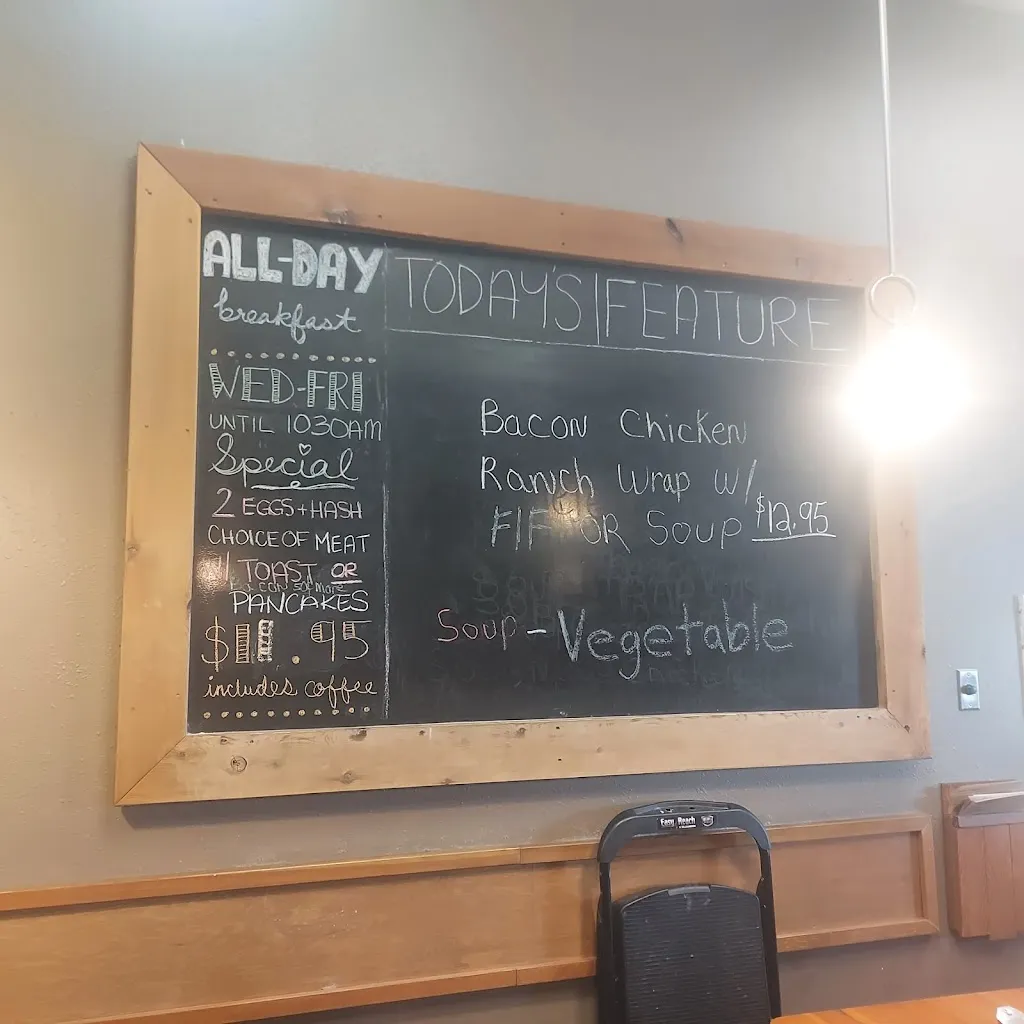 ALL-DAY
breakfast
WED-FRI
UNTIL 1030AM
Special
2 EGGS + HASH
CHOICE OF MEAT
W/ TOAST OR
PANCAKES
$11.95
includes coffee
TODAY'S | FEATURE
Bacon Chicken
Ranch Wrap w/
FF OR Soup $12.95
Soup - Vegetable
Easy Reach